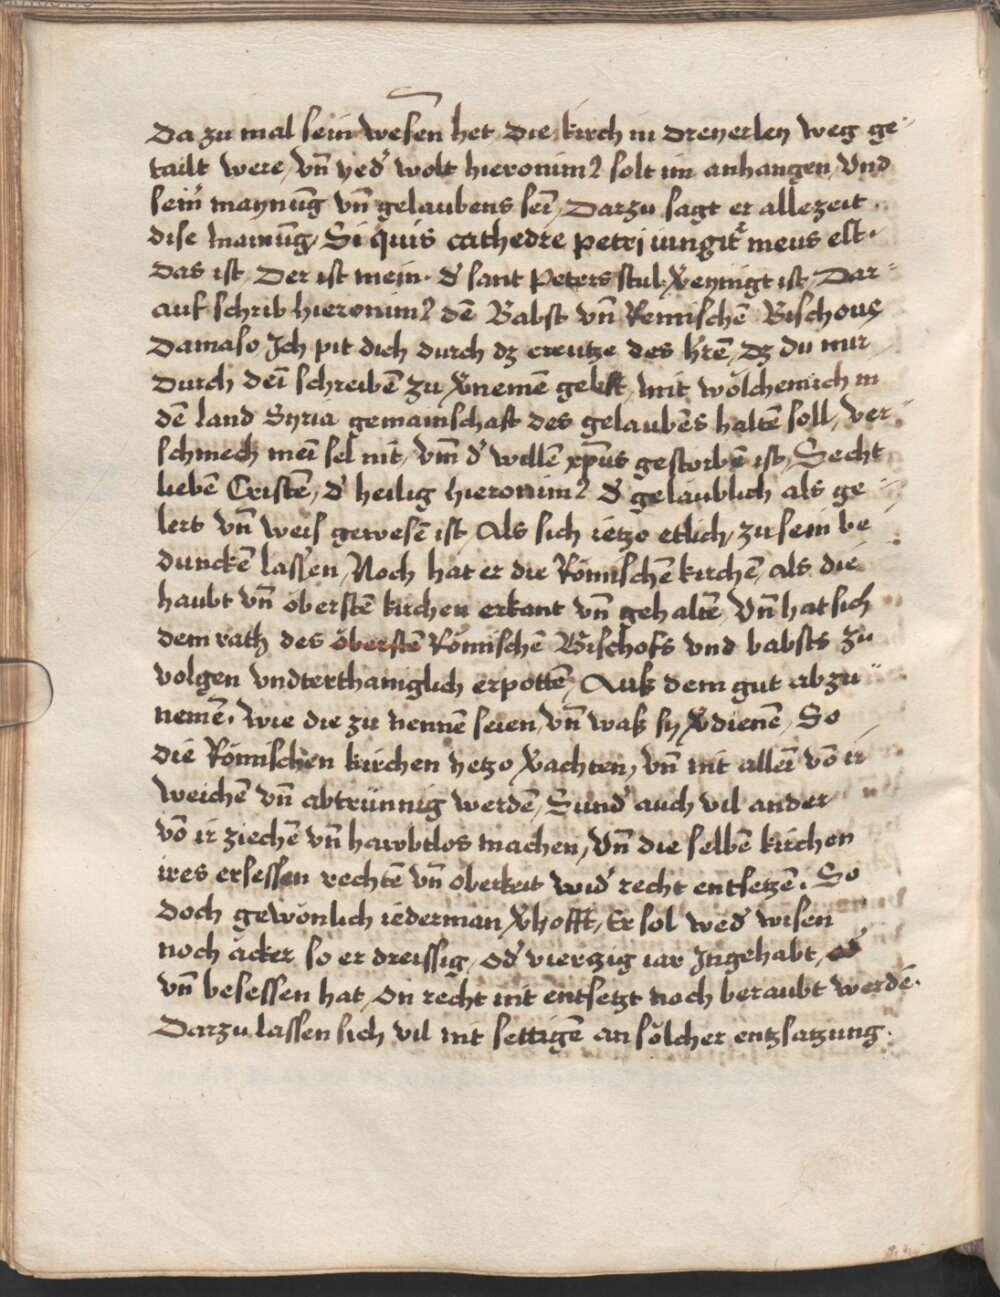 Da zu mal sein wesen het die kirch in dreyerley weg ge-
tailt were, vn̄ yed' wolt hieronim9 solt im anhangen, vnd
sein' maynūg vn̄ gelaubens seī, Darzu sagt er allezeit
dise mainūg, Si quis cathedre petri iungit' meus est.
das ist, Der ist mein. d' sant Peters stul v'eynigt ist, Dar-
auf schrib hieronim9 dē Babst vn̄ Remischē Bischoue
Damaso Ich pit dich durch dz creutze des h'rē, Dz du mir
Durch deī schreibē zu v'nemē gebst, mit wölchem ich in
dē land Syria gemainschaft des gelaubēs haltē soll, ver-
schmech meī sel nit, vm̄ d' willē xp̄us gestorbē ist, Secht
liebē Cristē, d' heilig hieronim9 d' gelaublich als ge-
lert vn̄ weis gewesē ist, Als sich ietzo etlich, zu sein be
dunckē lassen, Noch hat er die Römischē kirchē, als die
haubt vn̄ oberstē kirchen erkant vn̄ gehaltē, Vn̄ hat sich
dem rath des öberstē Römischē Bischofs vnd babsts zu
volgen vndterthaniglich erpottē, Auß dem gut abzu-
nemē. wie die zu nennē seien, vn̄ waß sy v'dienē, So
die Römischen kirchen yetzo v'achten, vn̄ nit alleī vō ir
weichē vn̄ abtrünnig werdē, Sund' auch vil ander
vō ir ziechē vn̄ hawbtlos machen, Vn̄ die selbē kirchen
ires ersessen rechtē vn̄ oberkeit wid' recht entsetzē. So
doch gewönlich iederman v'hofft, Er sol wed' wisen
noch äcker, so er dreissig, od' vierzig iar Ingehabt, od'
vn̄ besessen hat, on recht nit entsetzt noch beraubt werdē.
Darzu lassen sich vil mt settigē an sölcher entzsatzung.